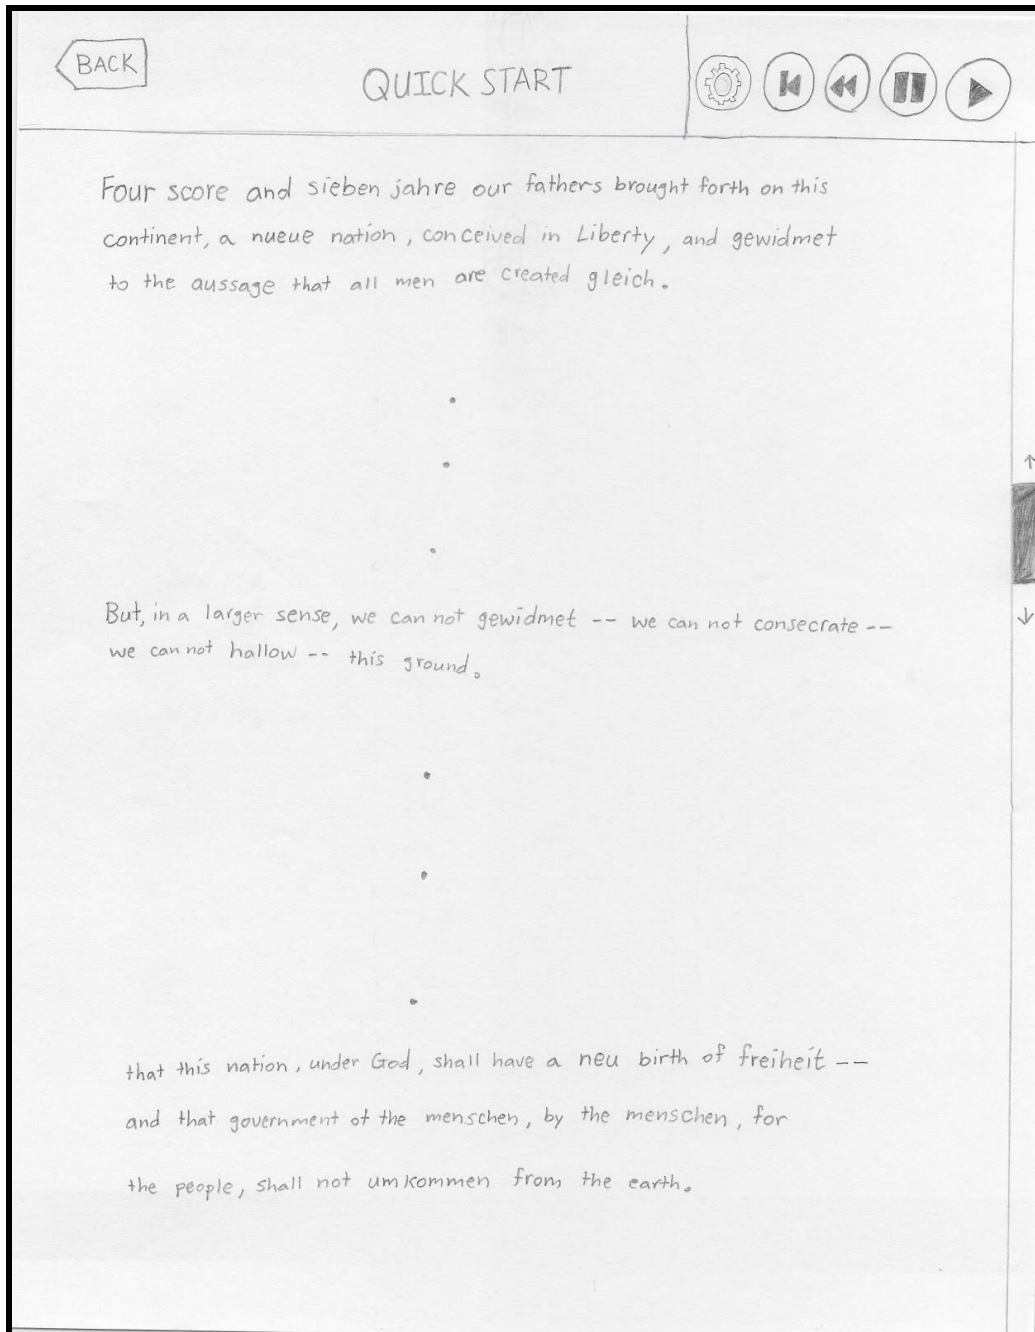 BACK
QUICK START
Four score and sieben jahre our fathers brought forth on this
continent, a nueue nation, conceived in Liberty, and gewidmet
to the aussage that all men are created gleich.
But, in a larger sense, we can not gewidmet -- we can not consecrate --
we can not hallow -- this ground.
that this nation, under God, shall have a neu birth of freiheit --
and that government of the menschen, by the menschen, for
the people, shall not umkommen from the earth.